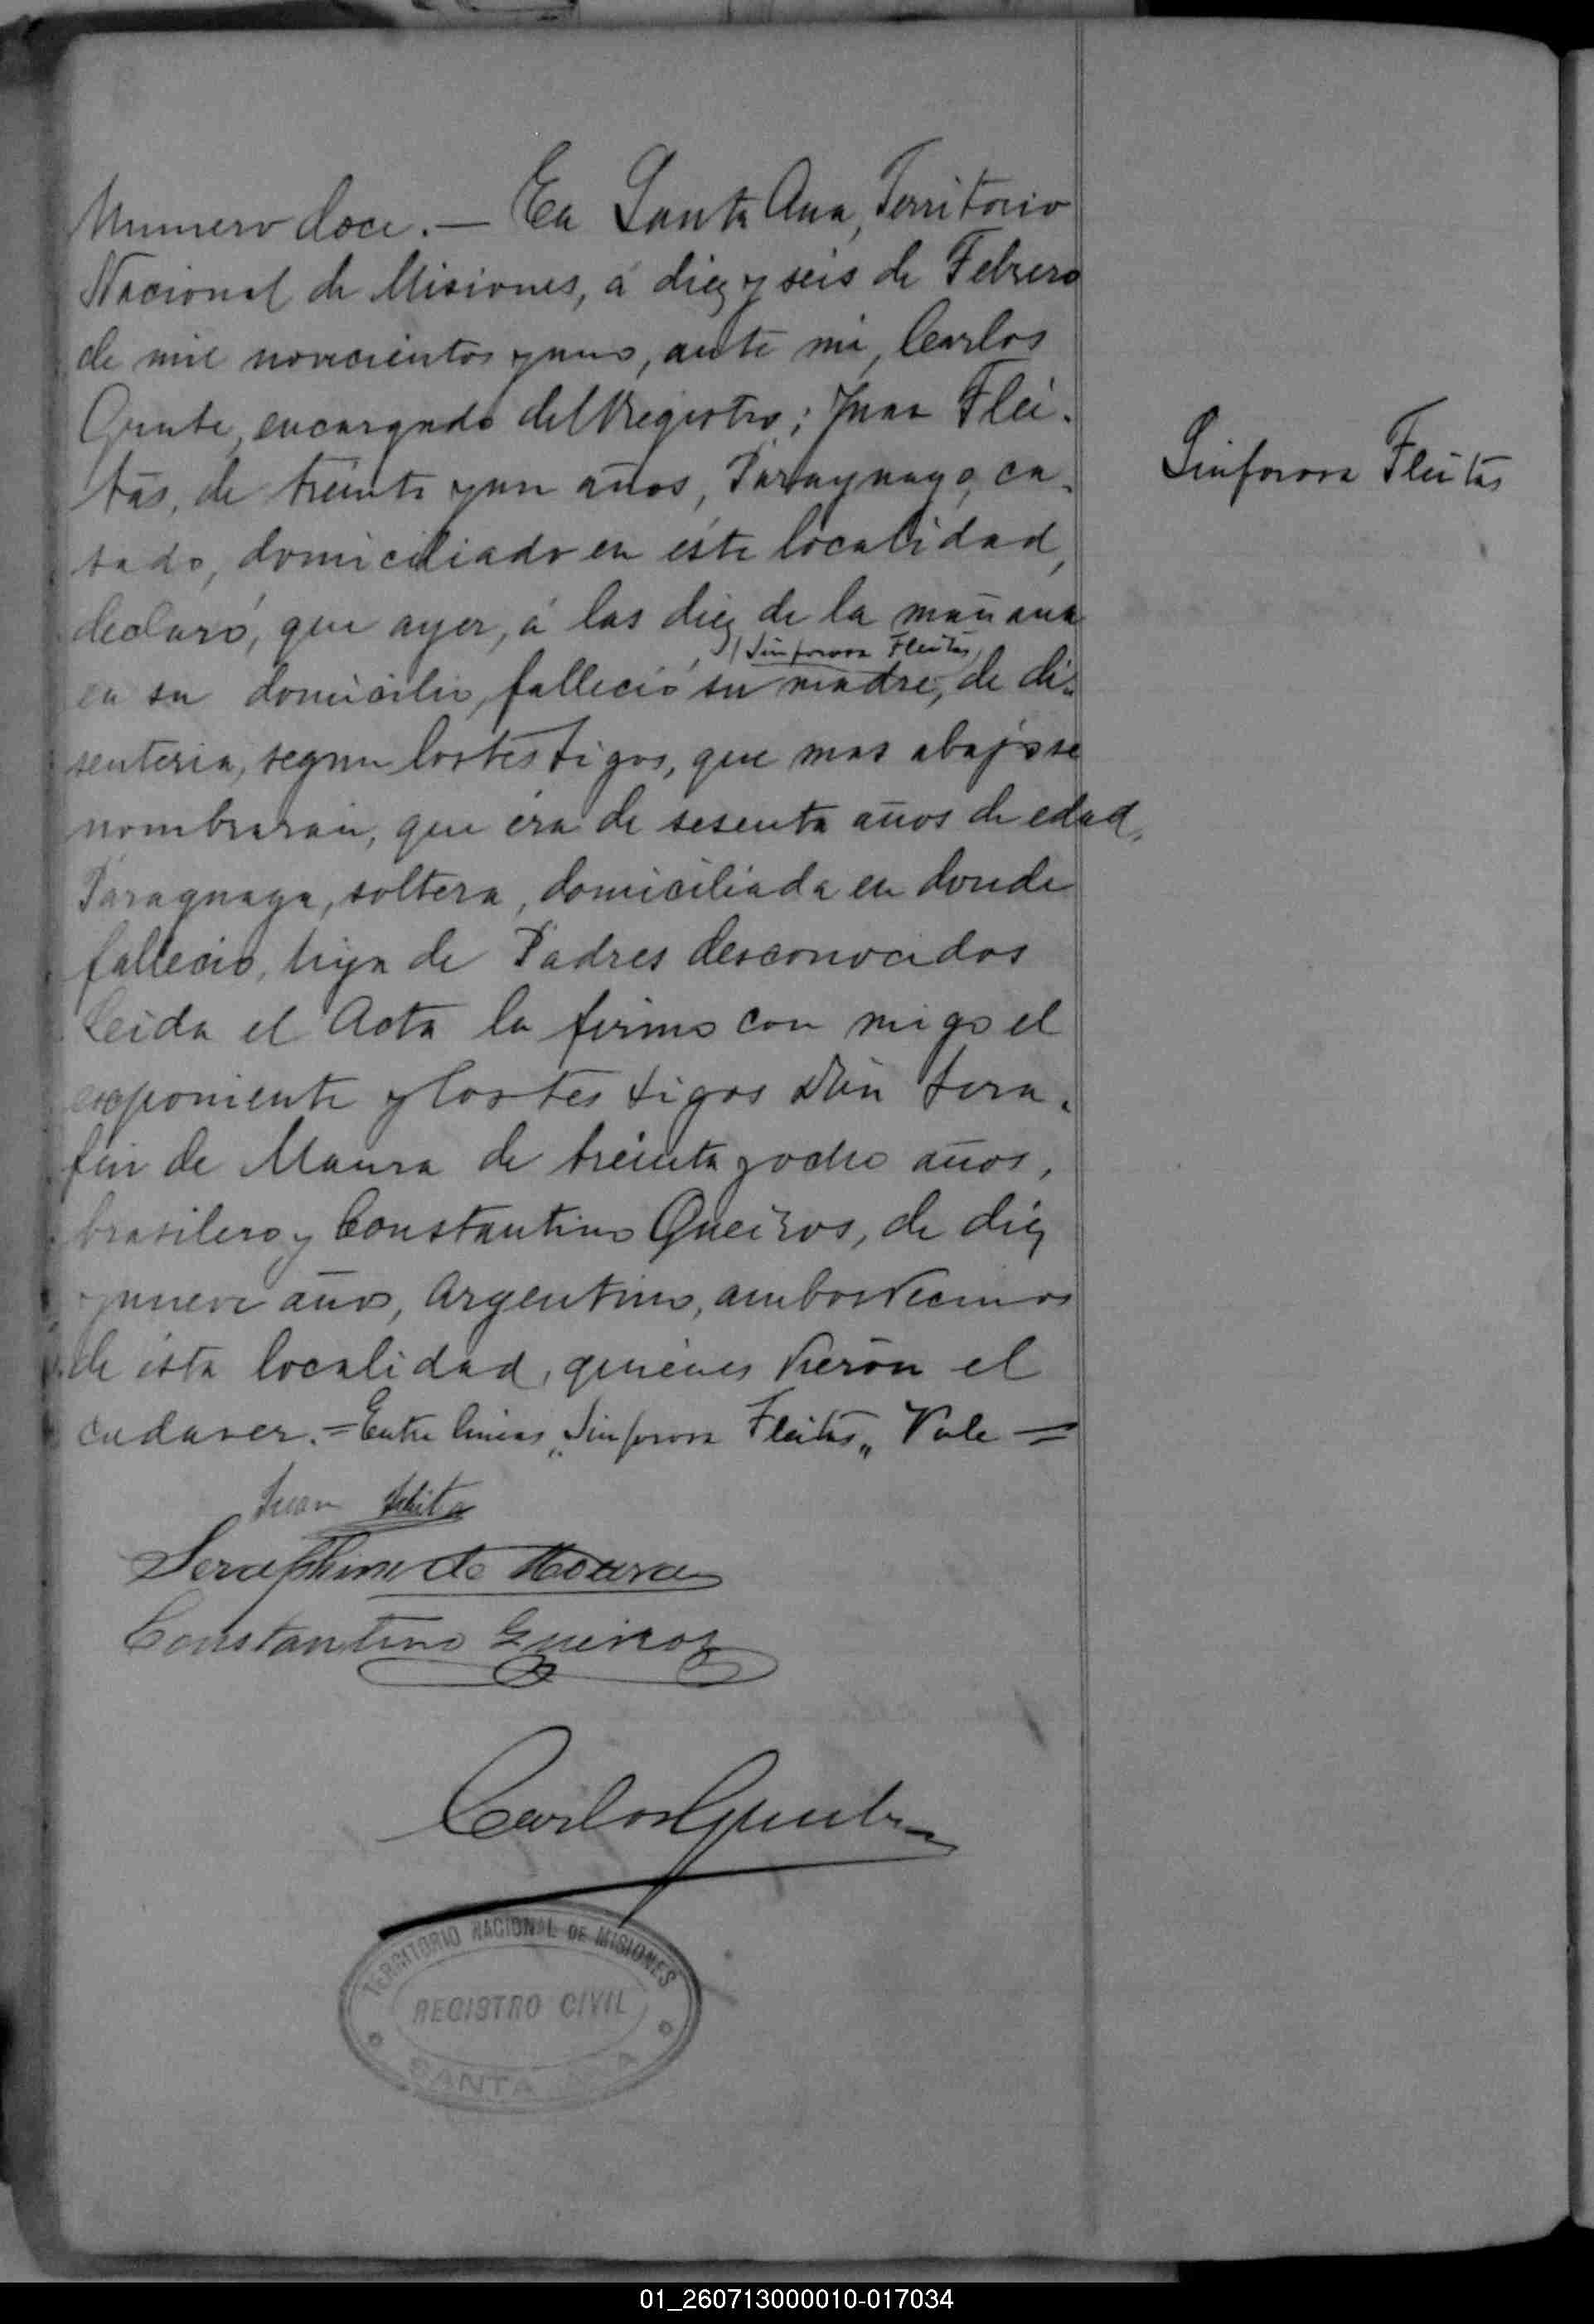 Numero doce. — En Santa Ana, Territorio
Nacional de Misiones, á diez y seis de Febrero
de mil novecientos y uno, ante mi, Carlos
encargado del Registro; Juan Flei-
tas, de treinta y un años, Paraguayo, ca-
sado, domiciliado en ésta localidad,
declaró, que ayer, á las diez de la mañana
/Sinforosa Fleitas/
en su domicilio, falleció su madre, de di-
senteria, segun los testigos, que mas abajo se
nombraran, que era de sesenta años de edad,
Paraguaya, soltera, domiciliada en donde
fallecio, hija de Padres desconocidos
Leida el Acta la firmo con migo el
exponiente y los testigos Don Sera-
fin de Maura de treinta y ocho años,
brasilero y Constantino Queiros, de diez
y nueve años, Argentino, ambos vecinos
de ésta localidad, quienes vieron el
cadaver. = Entre lineas „Sinforosa Fleitas„ Vale =
Sinforosa Fleitas
Juan Fleita
Seraphim de Moura
Constantino Queiroz
Carlos
TERRITORIO NACIONAL DE MISIONES
REGISTRO CIVIL
SANTA ANA
01_260713000010-017034